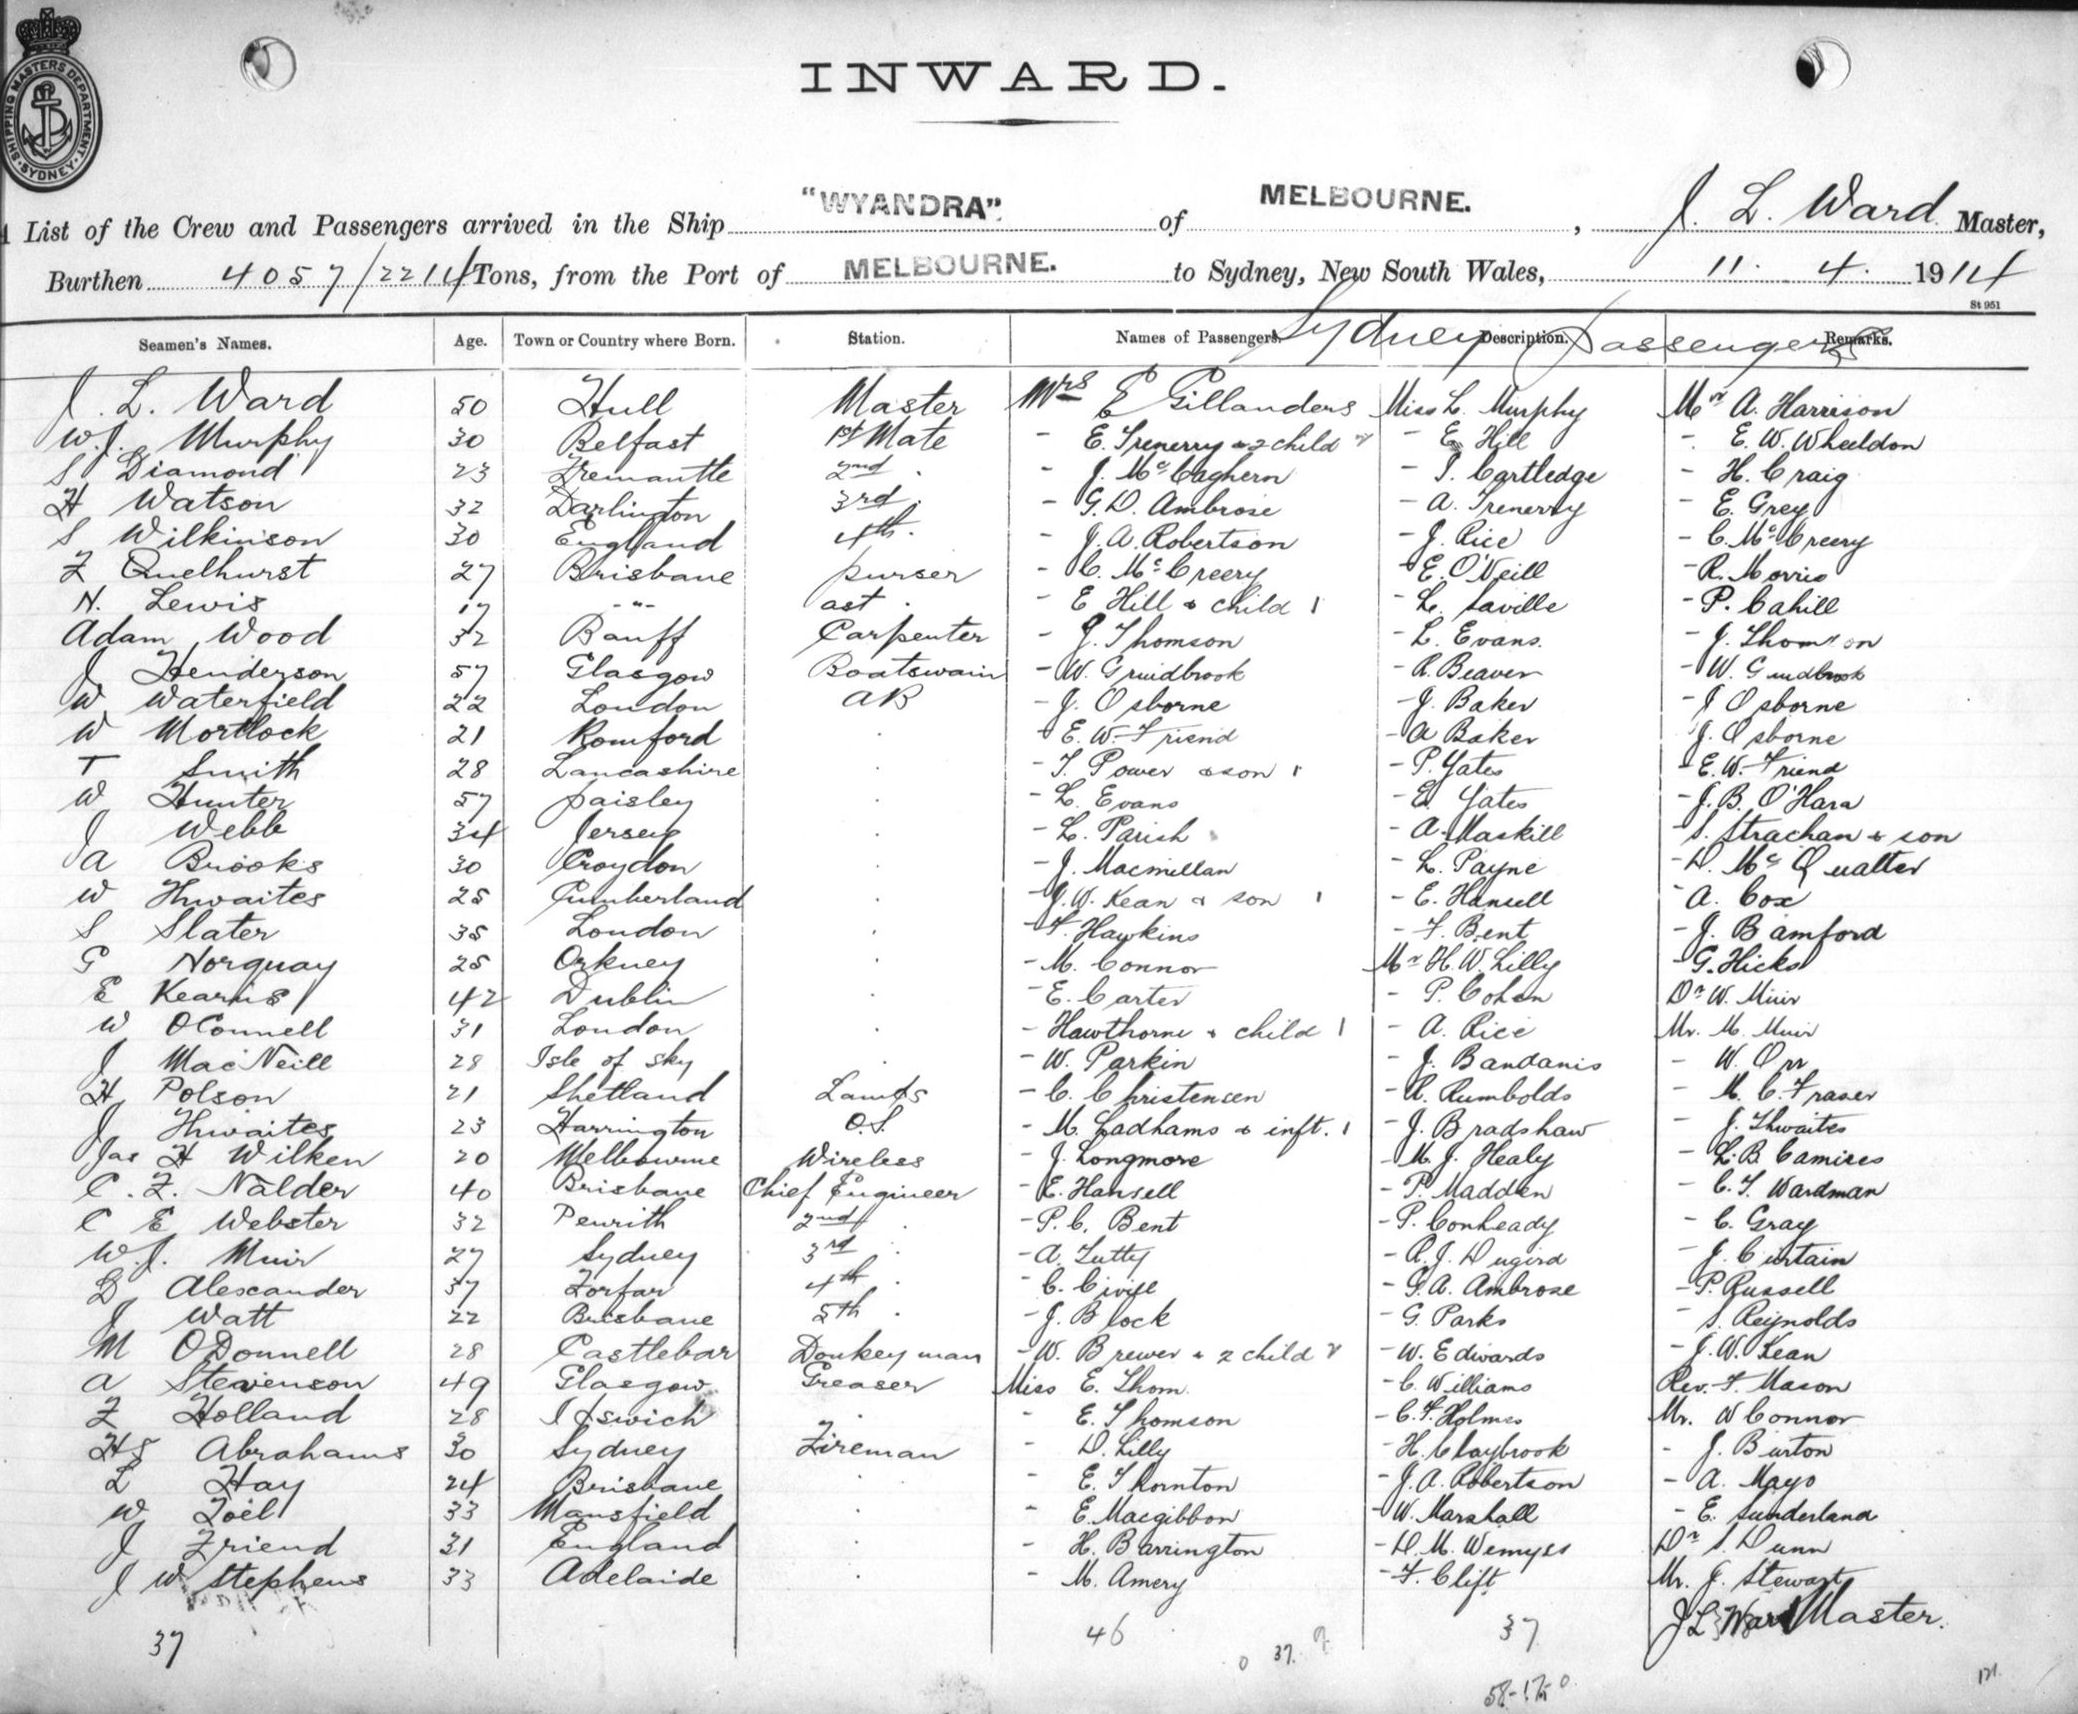 INWARD.
SHIPPING MASTERS DEPARTMENT SYDNEY
"WYANDRA" MELBOURNE.
List of the Crew and Passengers arrived in the Ship of , J. L. Ward Master,
Burthen 4057/2214 Tons, from the Port of MELBOURNE. to Sydney, New South Wales, 11. 4. 1914
St 951
Sydney Passengers
Seamen's Names. Age. Town or Country where Born. Station. Names of Passengers. Description. Remarks.
J. L. Ward 50 Hull Master Mrs E Gillanders Miss L. Murphy Mr A. Harrison
W.J. Murphy 30 Belfast 1st Mate - E. Trenerry & 2 child 2 - E. Hill - E. W. Wheeldon
S Diamond 23 Fremantle 2nd . - J. McCaghern - T. Cartledge - H. Craig
H Watson 32 Darlington 3rd . - G. D. Ambrose - A. Trenerry - E. Grey
S Wilkinson 30 England 4th . - J. A. Robertson - J. Rice - C. McCreery
F Quelhurst 27 Brisbane purser - C. McCreery - E. O'Neill - R. Morris
N. Lewis 17 -"- ast . - E Hill & child 1 - L. Saville - P. Cahill
Adam Wood 32 Banff Carpenter - J. Thomson - L. Evans. - J. Thomson
J Henderson 57 Glasgow Boatswain - W. Grundbrook - R. Beaver - W. Grundbrook
W Waterfield 22 London AB - J. Osborne - J. Baker - J Osborne
W Mortlock 21 Romford . - E. W. Friend - A Baker - J. Osborne
T Smith 28 Lancashire . - T. Power & son 1 - P. Yates - E. W. Friend
W Hunter 57 paisley . - L. Evans - E. Yates - J. B. O'Hara
J Webb 34 Jersey . - L. Parish - A. Maskill - S. Strachan & son
A Brooks 30 Croydon . - J. Macmillan - L. Payne - D. McQualter
W Thwaites 25 Cumberland . - J. W. Kean & son 1 - E. Hansell - A. Cox
S Slater 35 London . - F. Hawkins - F. Bent - J. Bamford
G Norquay 25 Orkney . - M. Connor Mr H. W. Lilly - G. Hicks
E Kearns 42 Dublin . - E. Carter - P. Cohen Dr W. Muir
W OConnell 31 London . - Hawthorne & child 1 - A. Rice Mr. M. Muir
J MacNeill 28 Isle of Sky . - W. Parkin - J. Bandanis - W. Orr
H Polson 21 Shetland Lamps - C. Christensen - R. Rumbolds - M. C. Fraser
J Thwaites 23 Harrington O.S. - M. Ladhams & inft. 1 - J. Bradshaw - J. Thwaites
Jas H Wilken 20 Melbourne Wireless - J. Longmore - M. J. Healy - L. B. Camises
C. F. Nalder 40 Brisbane Chief Engineer - E. Hansell - P. Madden - C. T. Wardman
C E Webster 32 Penrith 2nd . - P. C. Bent - P. Conheady - C. Gray
W. J. Muir 27 Sydney 3rd . - A. Tutty - R. J. Dugird - J. Curtain
D Alexander 37 Forfar 4th . - C. Civill - G. A. Ambrose - P. Russell
J Watt 22 Brisbane 5th . - J. Block - G. Parks - S. Reynolds
M ODonnell 28 Castlebar Donkeyman - W. Brewer & 2 child 2 - W. Edwards - J. W. Kean
A Stevenson 49 Glasgow Greaser Miss E. Thom. - C. Williams Rev. F. Mason
F Holland 28 Ipswich . - E. Thomson - C. F. Holmes Mr. W Connor
H S Abrahams 30 Sydney Fireman - D. Lilly - H. Claybrook - J. Burton
L Hay 24 Brisbane . - E. Thornton - J. A. Robertson - A. Mayo
W Toel 33 Mansfield . - E. Macgibbon - W. Marshall - E. Sunderland
J Friend 31 England . - H. Barrington - D. M. Wemyss Dr S. Dunn
J W Stephens 33 Adelaide . - M. Amery - F. Clift Mr. J. Stewart
J L Ward Master.
37 46 37
0 37.
58-